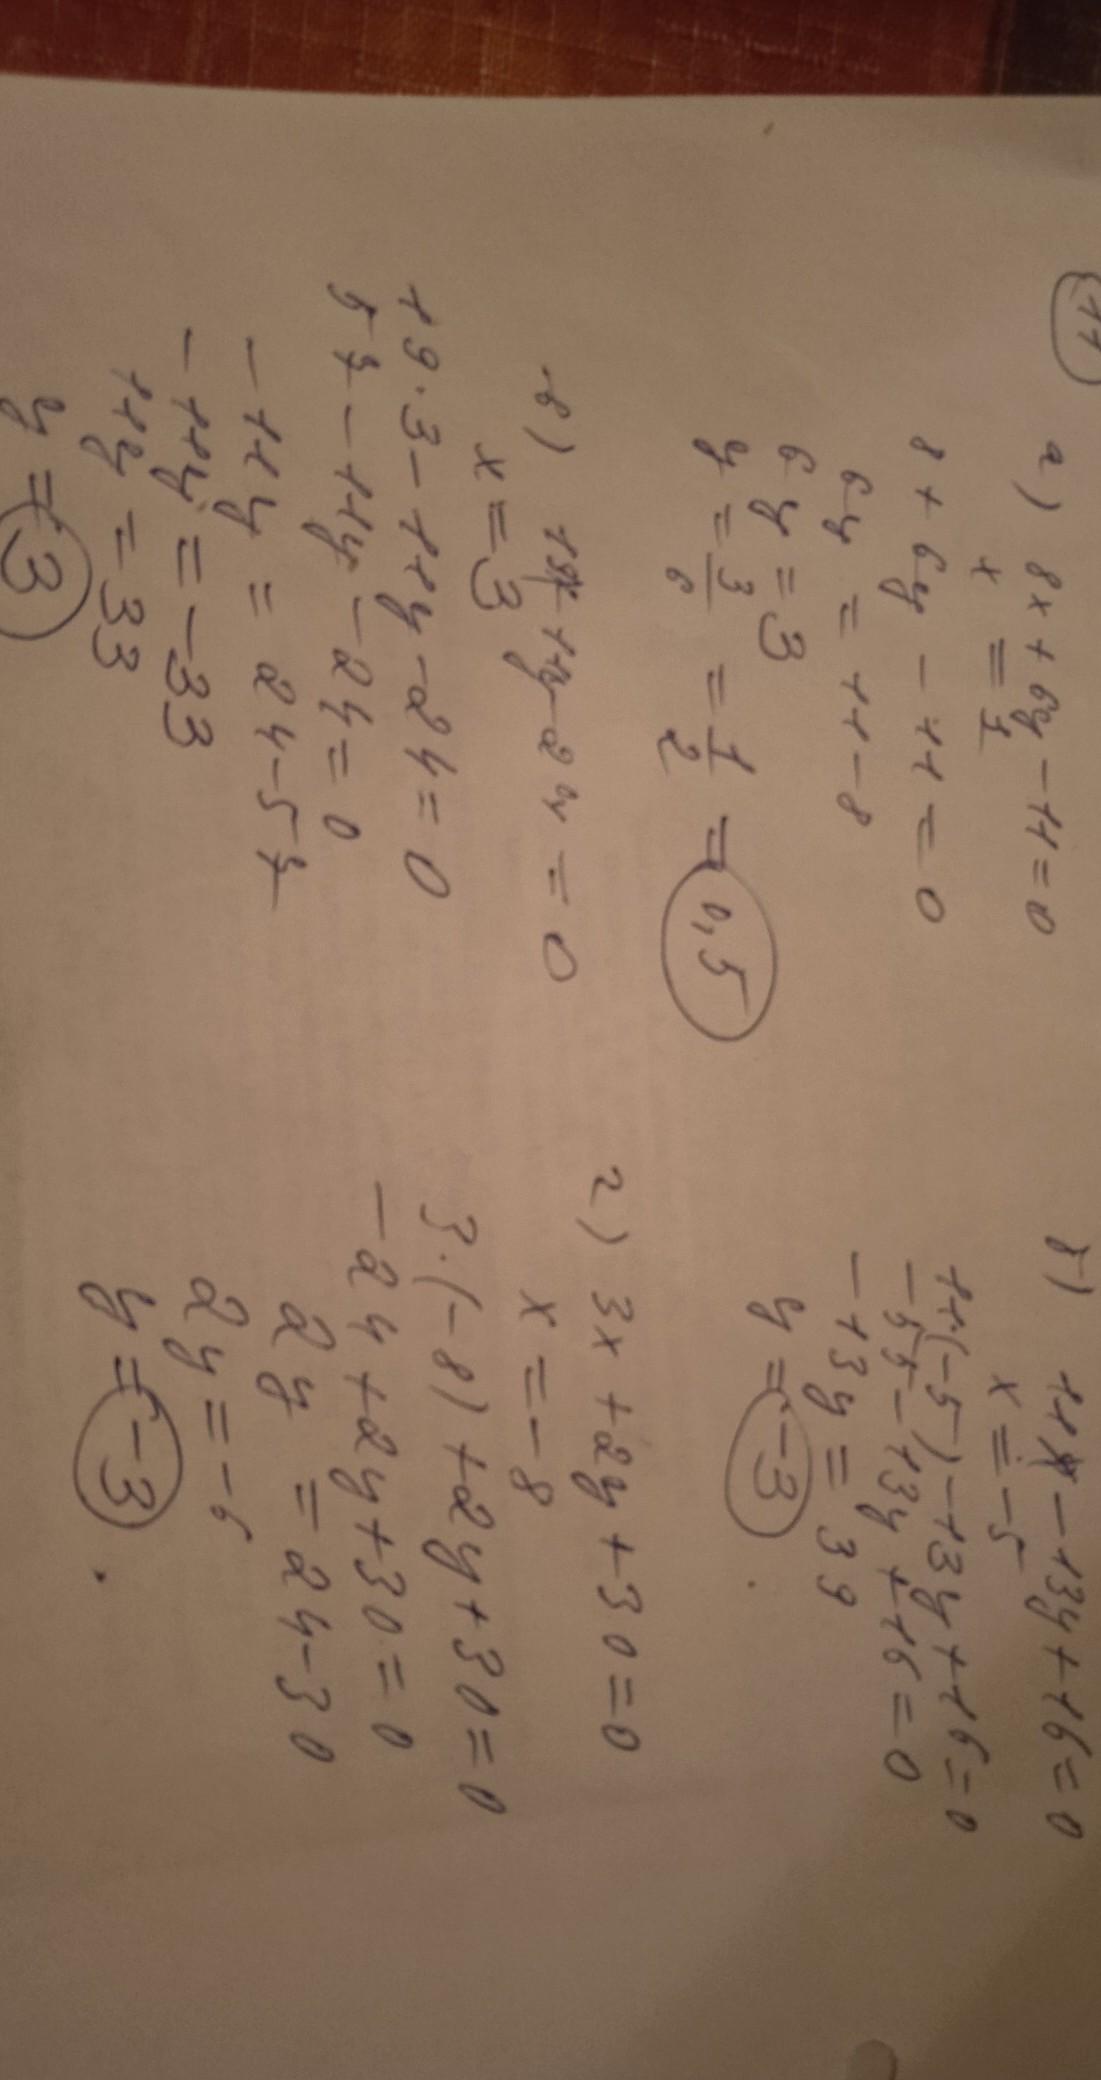 11
а) 8x + 6y - 11 = 0
x = 1
8 + 6y - 11 = 0
6y = 11 - 8
6y = 3
y = 3/6 = 1/2 = 0,5
б) 11x - 13y + 16 = 0
x = -5
11(-5) - 13y + 16 = 0
-55 - 13y + 16 = 0
-13y = 39
y = -3
в) 19x - 11y - 24 = 0
x = 3
19 · 3 - 11y - 24 = 0
57 - 11y - 24 = 0
-11y = 24 - 57
-11y = -33
11y = 33
y = 3
г) 3x + 2y + 30 = 0
x = -8
3 · (-8) + 2y + 30 = 0
-24 + 2y + 30 = 0
2y = 24 - 30
2y = -6
y = -3